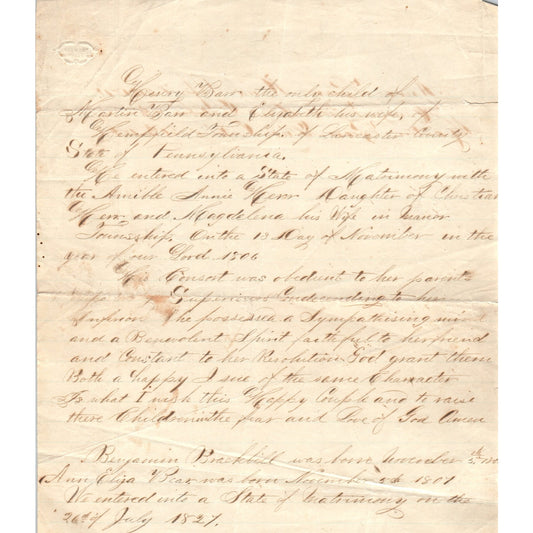 Henry Barr the only child of
Martin Barr and Elizabeth his wife, of
Hempfield Township. of Lancaster County
State of Pennsylvania.
He entered into a State of Matrimony with
the Amible Annie Herr Daughter of Christian
Herr and Magdelena his Wife in Manor
Township. On the 13 Day of November in the
year of our Lord 1806
His Consort was obedient to her parents
Superiors Condescending to her
She possessed a Sympathising mind
and a Benevolent Spirit faithful to her friend
and Constant to her Resolution God grant them
Both a happy I sue of the same Character
Is what I wish this Happy Couple and to raise
there Children in the fear and Love of God Amen
Benjamin Brackbill was born November
Ann Eliza Bear was born November 5th 1801
We entered into a State of Matrimony on the
26th of July 1827.